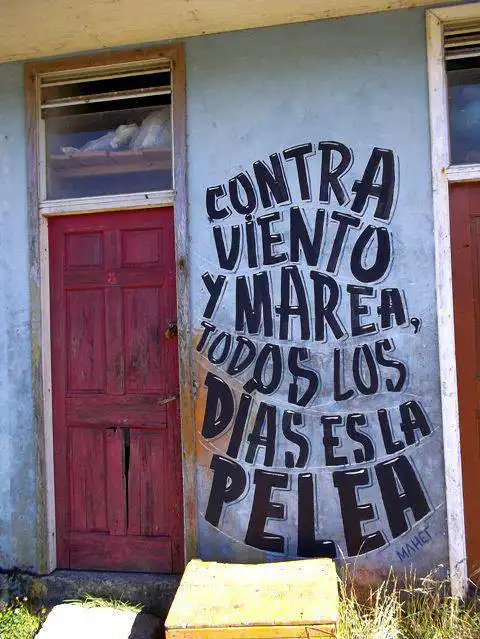 CONTRA
VIENTO
Y MAREA,
TODOS LOS
DÍAS ES LA
PELEA